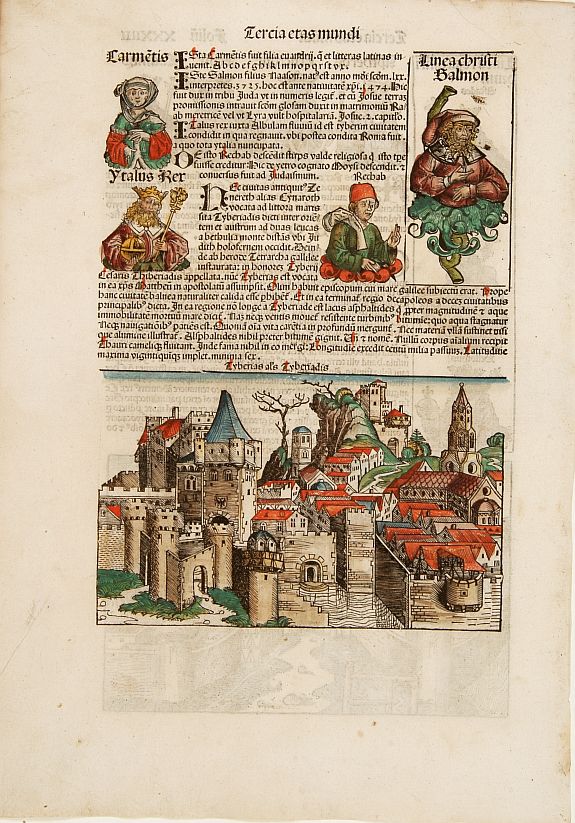 Tercia etas mundi
Carmētis
Ista Carmētis fuit filia euandrij. q̄ et litteras latinas in
uenit. A b c d e f g h i k l m n o p q r s t v x.
Iste Salmon filius Naason. nat⁹ est anno mōi
interpretes. 3723. hoc est ante natiuitatē xp̄i. 1474. Hic
fuit dux in tribu Juda vt in numeris legit̄. et cū Josue terrā
promissionis intrauit scōm glosam duxit in matrimoniū Ra
ab meretricē vel vt Lyra vult hospitalariā. Josue. 2. capitulo.
Italus rex iuxta Albulam fluuiū id est tyberim ciuitatem
condidit in qua regnauit. vbi postea condita Roma fuit.
a quo tota ytalia nuncupata.
De isto Rechab descēdit stirps valde religiosa q̄ isto tpe
fuisse creditur. Hic de yetro cognato Moysi descendit. et
conuersus fuit ad Judaismum.
Linea christi
Salmon
Ytalus Rex
Rechab
Hec ciuitas antiquit⁹ Ze
nereth alias Cynaroth
vocata ad littora maris
sita Tyberiadis dicti inter oriē
tem et austrum ad duas leucas
a bethulia monte distās vbi Ju
dith holofernem occidit. Dein
de ab herode Tetrarcha galilee
instaurata: in honorez Tyberij
Cesaris Thiberiadis appellata. nūc Tyberias est vocata
in ea xp̄us Mattheū in apostolatū assumpsit. Olim habuit episcopum cui mare galilee subiectū erat. Prope
hanc ciuitatē balnea naturaliter calida esse phibēt. Et in ea terminat̄ regio decapoleos a decez ciuitatibus
principalib⁹ dicta. In ea regione nō longe a Tyberiade est lacus asphaltides q̄ propter magnitudinē et aque
immobilitatē mortuū mare dicit̄. Nā necz ventis mouet̄ resistente turbinib⁹ bitumie: quo aqua stagnatur
Necz nauigationib⁹ patiēs est. Quoniā oīa vita carētia in profundū mergunt̄. Nec materiā vllā sustinet nisi
que alumine illustrat̄. Asphaltides nihil preter bitumē gignit. Vn̄ et nomē. Nullū corpus aīalium recipit
Tauri cameliqz fluitant. Inde fama nihil in eo mergi. Longitudie excedit centū milia passuū. Latitudine
maxima vigintiquiqz implet. minima sex.
Tyberias als Tyberiadis